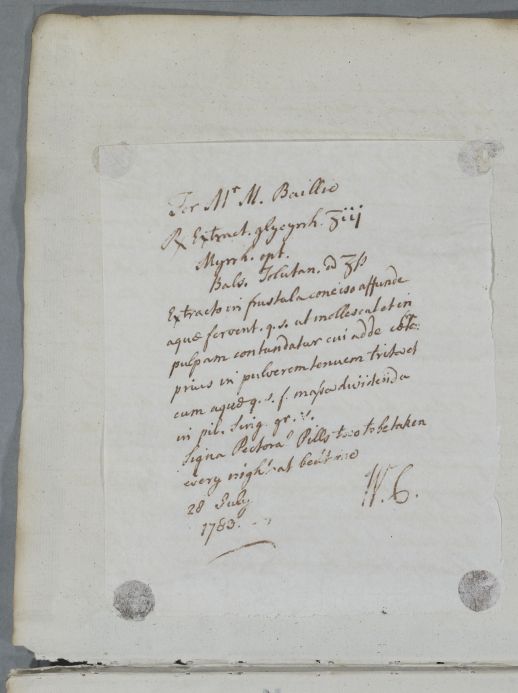 For Mr M. Baillie
℞ Extract. glycyrrh. ℥iij
Myrrh. opt.
Bals. Tolutan. a̅a̅ ℥ß
Extracto in frustula conciso affunde
aquæ fervent. q. s. ut mollescat et in
pulpam contundatur cui adde cæt:
prius in pulverem tenuem trita et
cum aquæ q. s. f. massa dividenda
in pil. sing. gr. v.
Signa Pectoral Pills two to be taken
every night at bed time
28 July
1783.
W. C.